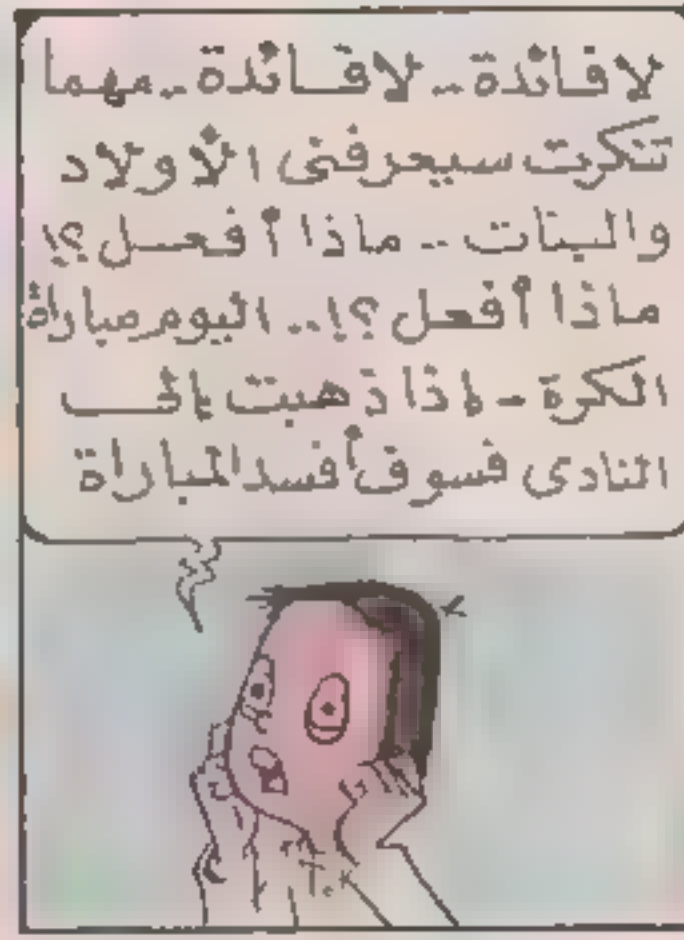 لا فائدة -- لا فائدة -- مهما
تنكرت سيعرفنى الأولاد
والبنات -- ماذا أفعل ؟!
ماذا أفعل ؟! .. اليوم مباراة
الكرة - إذا ذهبت إلى
النادى فسوف أفسد المباراة
T.K